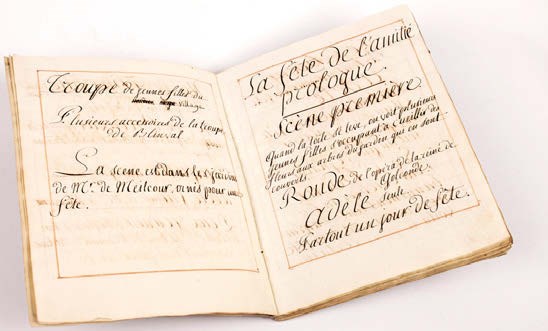 Troupe de jeunes filles du
village
Plusieurs accessoires de la troupe
de Blinval
La scene est dans les jardins
de Mr. de Meilcour, ornés pour une
fête.
La fête de l'amitié
prologue.
Scène première
Quand la toile se leve, on voit plusieurs
jeunes filles s'occupant à cueillir des
fleurs aux arbres du jardin qui en sont
couverts
Ronde de l'opera de la reine de
Golconde
adèle seule
Partout un jour de fête.